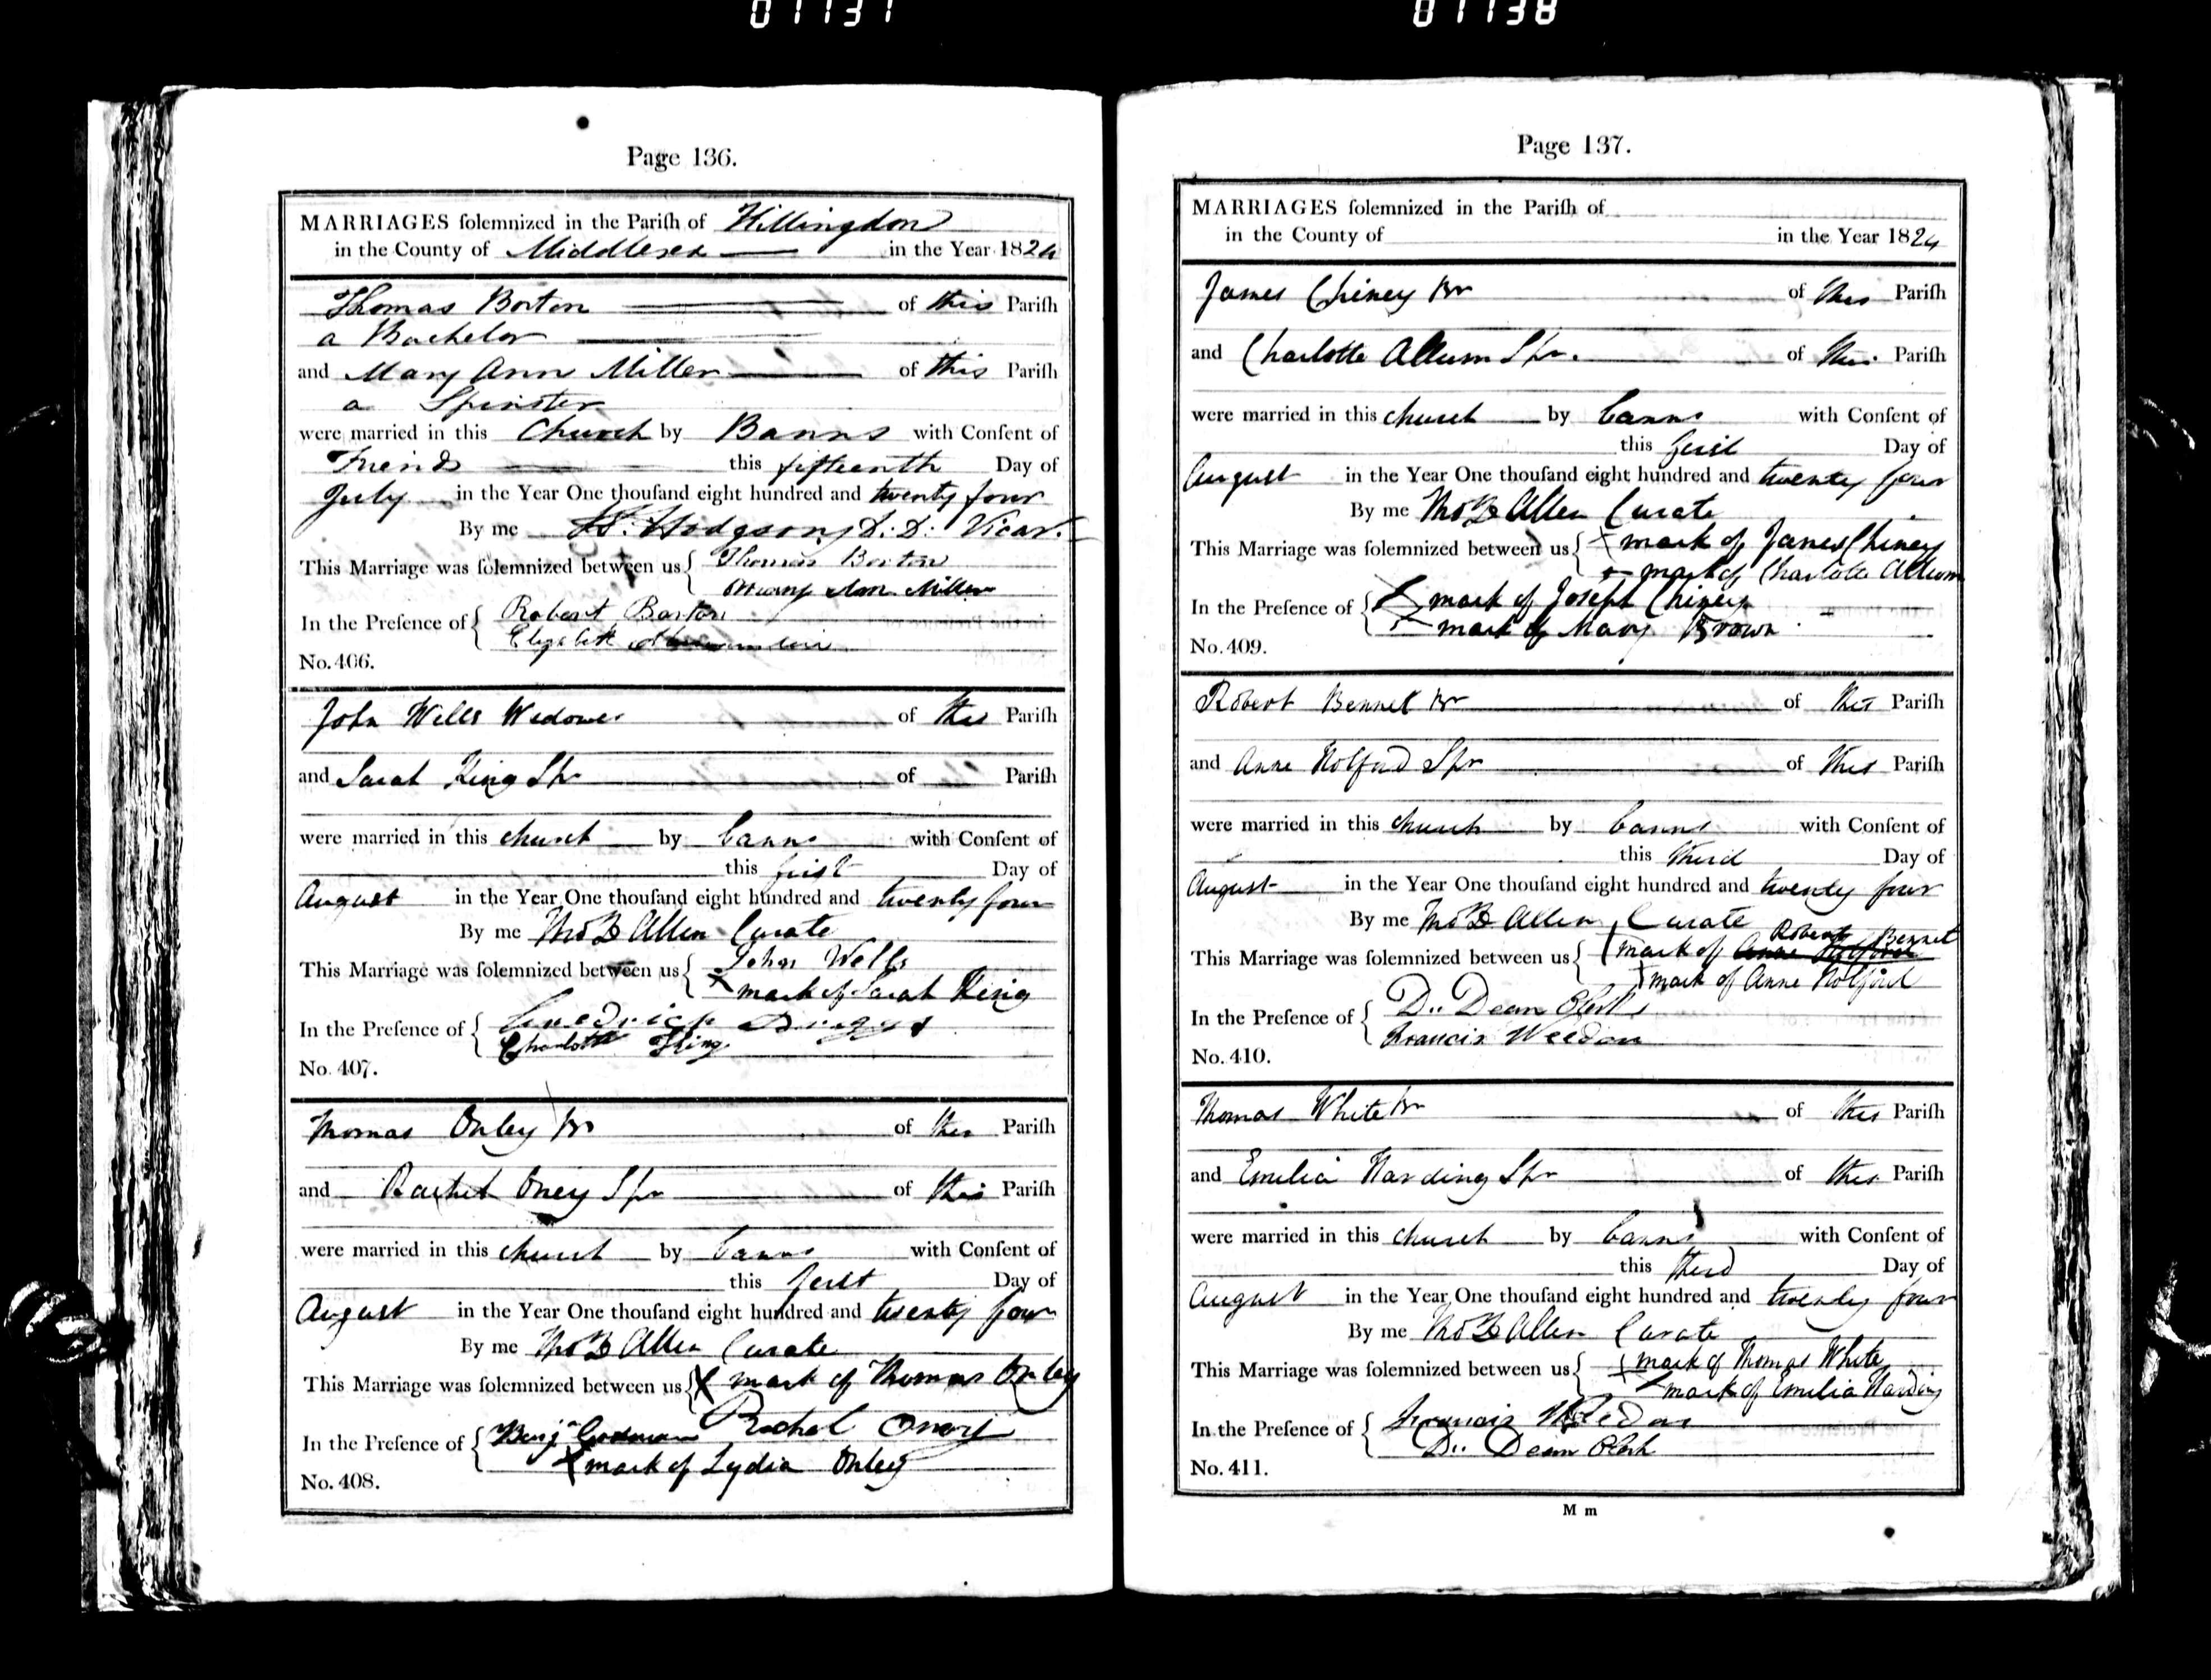 01137
01138
Page 136.
MARRIAGES ſolemnized in the Pariſh of Hillingdon
in the County of Middlesex in the Year 1824
Thomas Borton of this Pariſh
a Bachelor
and Mary Ann Miller of this Pariſh
a Spinster
were married in this Church by Banns with Conſent of
Friends this fifteenth Day of
July in the Year One thouſand eight hundred and twenty four
By me Hodgson, D.D. Vicar.
This Marriage was ſolemnized between us { Thomas Borton
Mary Ann Miller
In the Preſence of { Robert Borton
Elizabeth
No. 406.
John Wells Widower of this Pariſh
and Sarah King Spr of Pariſh
were married in this church by banns with Conſent of
this first Day of
August in the Year One thouſand eight hundred and twenty four
By me Thos B Allen Curate
This Marriage was ſolemnized between us { John Wells
x mark of Sarah King
In the Preſence of {
Charlotte King
No. 407.
Thomas Onley Br of this Pariſh
and Rachel Oney Spr of this Pariſh
were married in this church by banns with Conſent of
this first Day of
August in the Year One thouſand eight hundred and twenty four
By me Thos B Allen Curate
This Marriage was ſolemnized between us { X mark of Thomas Onley
Rachel Oney
In the Preſence of { Benjn
X mark of Lydia Onley
No. 408.
Page 137.
MARRIAGES ſolemnized in the Pariſh of
in the County of in the Year 1824
James Chiney Br of this Pariſh
and Charlotte Allum Spr. of this Pariſh
were married in this church by banns with Conſent of
this first Day of
August in the Year One thouſand eight hundred and twenty four
By me Thos B Allen Curate
This Marriage was ſolemnized between us { x mark of James Chiney
+ mark of Charlotte Allum
In the Preſence of { X mark of Joseph Chiney
x mark of Mary Brown
No. 409.
Robert Bennet Br of this Pariſh
and Anne Holford Spr of this Pariſh
were married in this church by banns with Conſent of
this third Day of
August in the Year One thouſand eight hundred and twenty four
By me Thos B Allen, Curate
This Marriage was ſolemnized between us { mark of Anne Holford Robert Bennet
mark of Anne Holford
In the Preſence of { D.. Dean Clerk
Francis Weedon
No. 410.
Thomas White Br of this Pariſh
and Emilia Harding Spr of this Pariſh
were married in this church by banns with Conſent of
this third Day of
August in the Year One thouſand eight hundred and twenty four
By me Thos B Allen Curate
This Marriage was ſolemnized between us { x mark of Thomas White
x mark of Emilia Harding
In the Preſence of { Francis Weedon
D.. Dean Clerk
No. 411.
M m